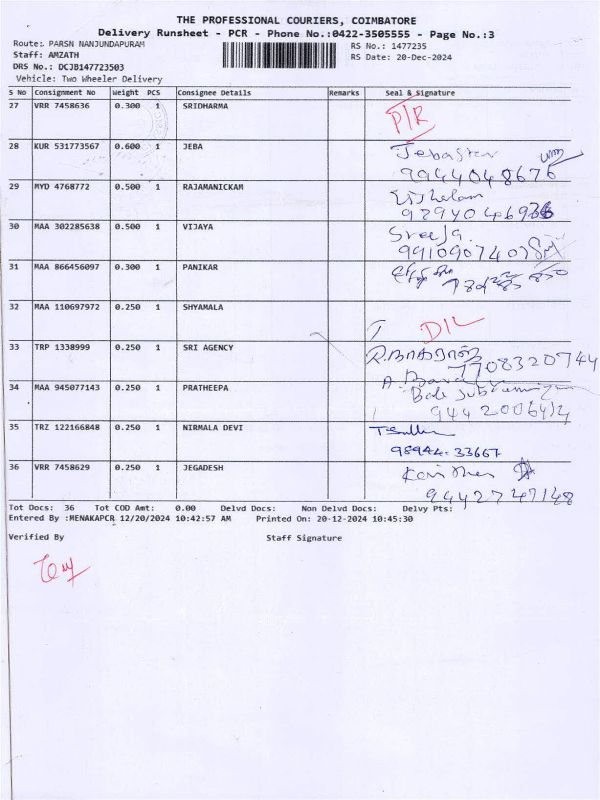 THE PROFESSIONAL COURIERS, COIMBATORE
Delivery Runsheet - PCR - Phone No.:0422-3505555 - Page No.:3
Route: PARSN NANJUNDAPURAM RS No.: 1477235
Staff: AMZATH RS Date: 20-Dec-2024
DRS No.: DCJB147723503
Vehicle: Two Wheeler Delivery
S No Consignment No Weight PCS Consignee Details Remarks Seal & Signature
27 VRR 7458636 0.300 1 SRIDHARMA P/R
28 KUR 531773567 0.600 1 JEBA
9944048676
29 MYD 4768772 0.500 1 RAJAMANICKAM
30 MAA 302285638 0.500 1 VIJAYA Sreeja
31 MAA 866456097 0.300 1 PANIKAR
32 MAA 110697972 0.250 1 SHYAMALA D/L
33 TRP 1338999 0.250 1 SRI AGENCY
7708320744
34 MAA 945077143 0.250 1 PRATHEEPA
35 TRZ 122166848 0.250 1 NIRMALA DEVI
98944-33667
36 VRR 7458629 0.250 1 JEGADESH
9442747148
Tot Docs: 36 Tot COD Amt: 0.00 Delvd Docs: Non Delvd Docs: Delvy Pts:
Entered By :MENAKAPCR 12/20/2024 10:42:57 AM Printed On: 20-12-2024 10:45:30
Verified By Staff Signature